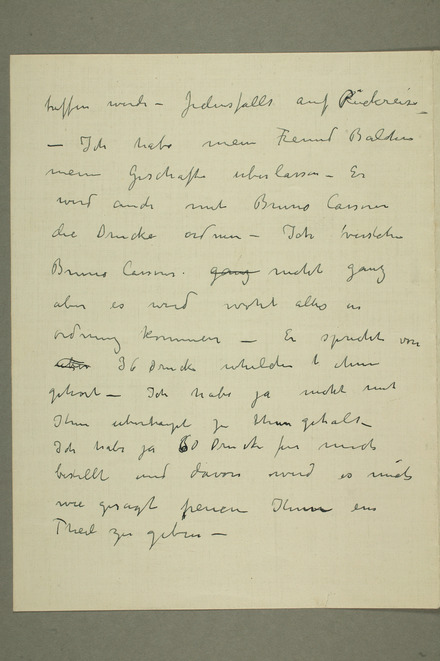 treffen werde – Jedenfalls auf Rückreise –
– Ich habe mein Freund Balden
meine Geschäfte überlassen – Er
wird auch mit Bruno Cassirer
die Drucke ordnen – Ich verstehe
Bruno Cassirer. ganz nicht ganz
aber es wird wohl alles in
ordnung kommen – Er spricht von
36 Drucke
gehört – Ich habe ja nicht mit
Ihm überhaupt zu thun gehabt –
Ich habe ja 60 Drucke für mich
bestellt und davon wird es mich
wie gesagt freuen Ihnen ein
Theil zu geben –